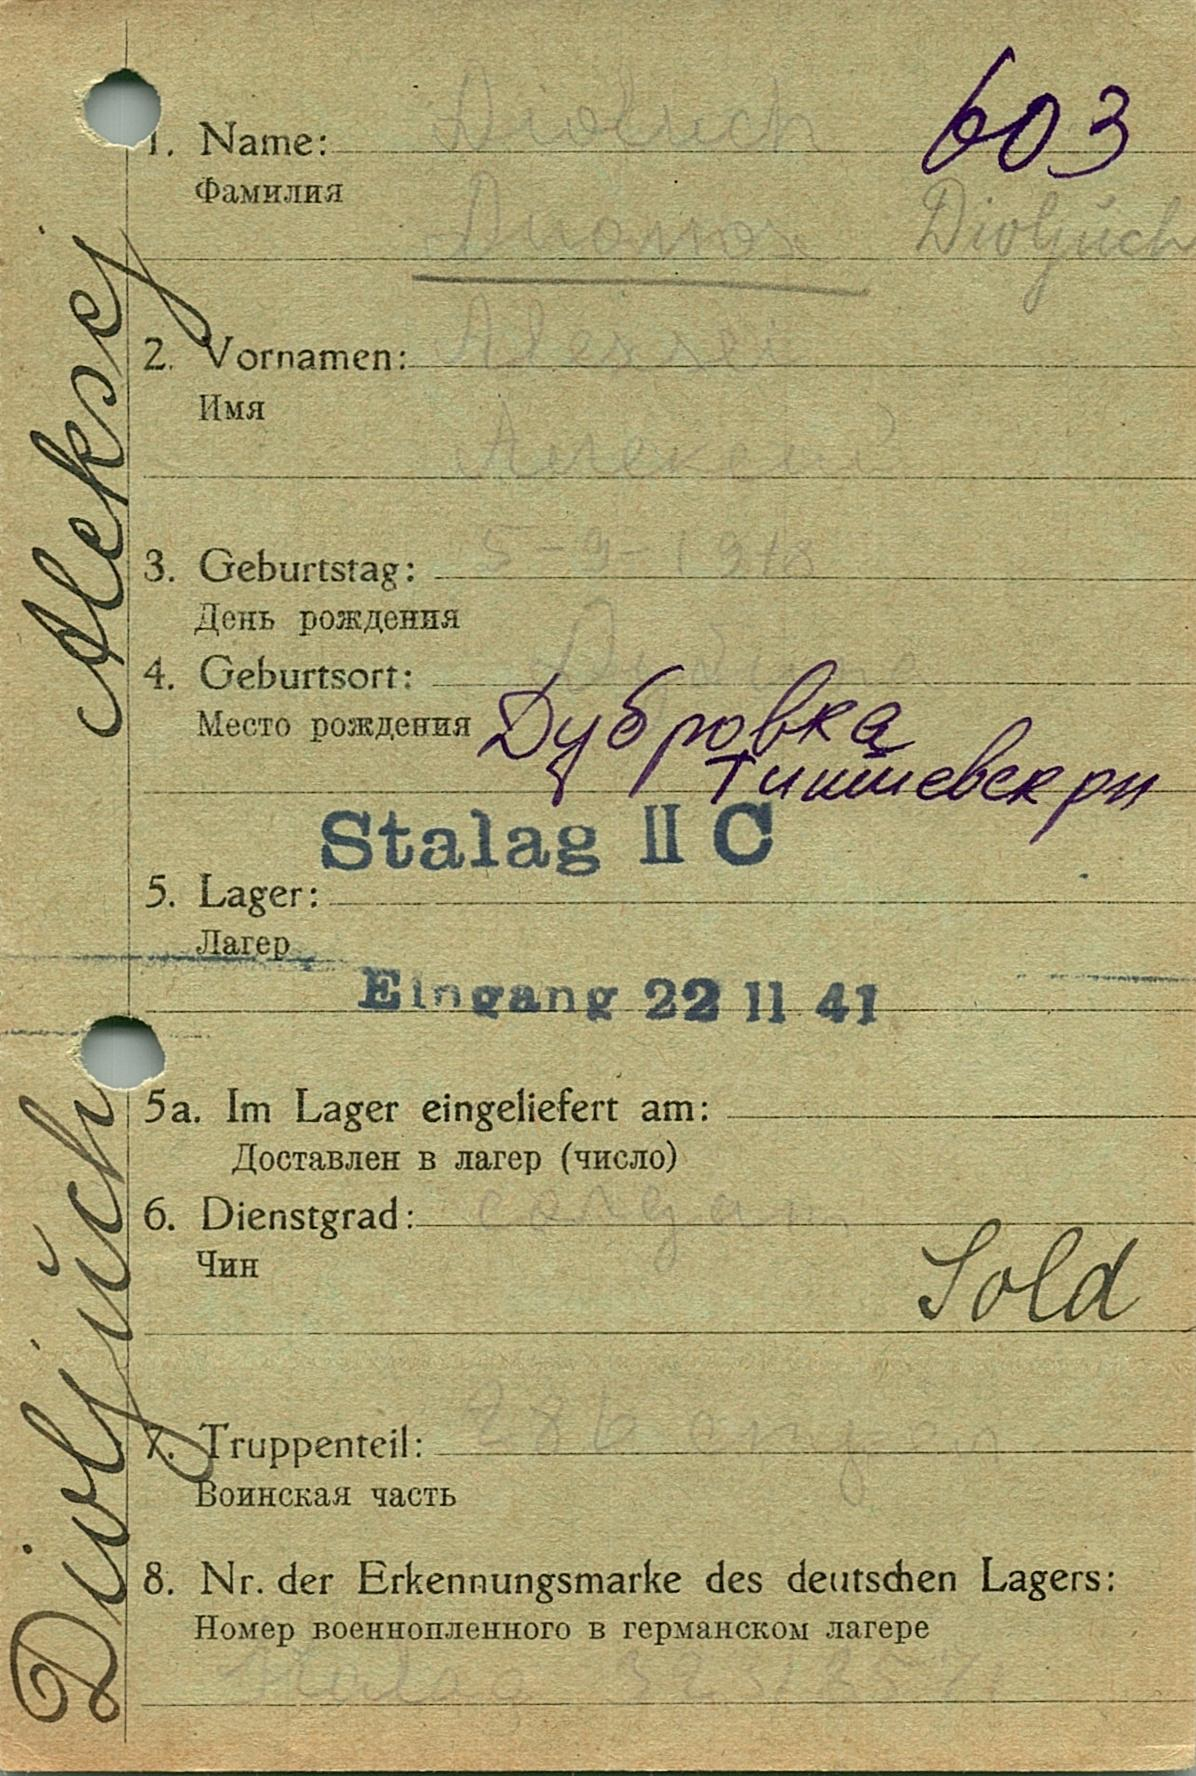 603
1. Name: Dioluch
Фамилия
Dioljuch
2. Vornamen: Alexsei
Имя
Алексей
3. Geburtstag: 5-9-1918
День рождения
4. Geburtsort:
Место рождения Дубровка
Stalag II C
5. Lager:
Лагер
Eingang 22 11 41
5a. Im Lager eingeliefert am:
Доставлен в лагер (число)
6. Dienstgrad: солдат
Чин
Sold
7. Truppenteil: 286
Воинская часть
8. Nr. der Erkennungsmarke des deutschen Lagers:
Номер военнопленного в германском лагере
Stalag
Dioljuch Aleksej